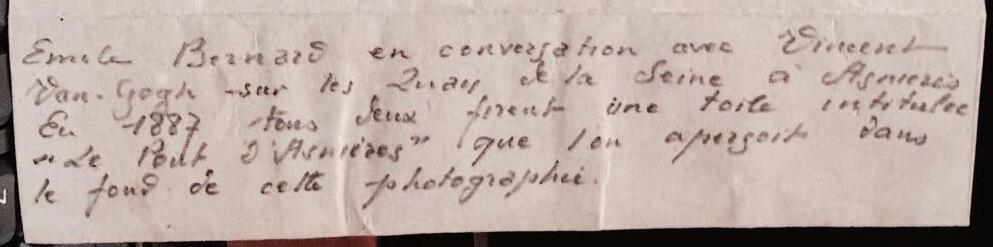 Emile Bernard en conversation avec Vincent
Van-Gogh sur les Quais de la Seine à Asnières
En 1887 tous deux firent une toile intitulée
"Le Pont d'Asnières" que l'on aperçoit dans
le fond de cette photographie.